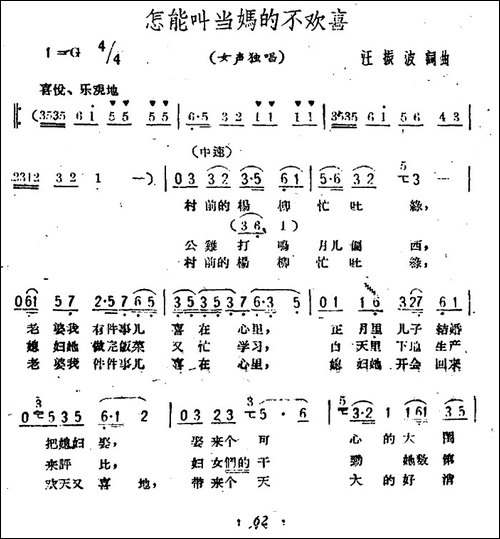 怎能叫当媽的不欢喜
1=G 4/4 (女声独唱) 汪振波詞曲
喜悅、乐观地
(3535 6 i 5 5 5 5 | 6·5 3 2 1 1 1 1 | 3535 6 i 5 6 4 3
2312 3 2 1 —) | 0 3 3 2 3·5 6 1 | 5·6 3 2 3 —
(中速)
村前的楊柳忙吐綠,
(3 6 1)
公雞打鳴月儿偏西,
村前的楊柳忙吐綠,
0 61 5 7 2·5 7 6 5 | 3 5 3 5 3 7 6·3 5 | 0 1 1 6 3 27 6 1
老婆我有件事儿喜在心里, 正月里儿子結婚
媳妇她做完飯菜又忙学习, 白天里下地生产
老婆我件件事儿喜在心里, 媳妇她开会回来
0 5 3 5 6·1 2 | 0 3 2 3 5 · 6 | 3·2 1 1 61 3 5
把媳妇娶, 娶来个可心的大閨
来評比, 妇女們的干勁她数第
欢天又喜地, 带来个天大的好消
· 62 ·